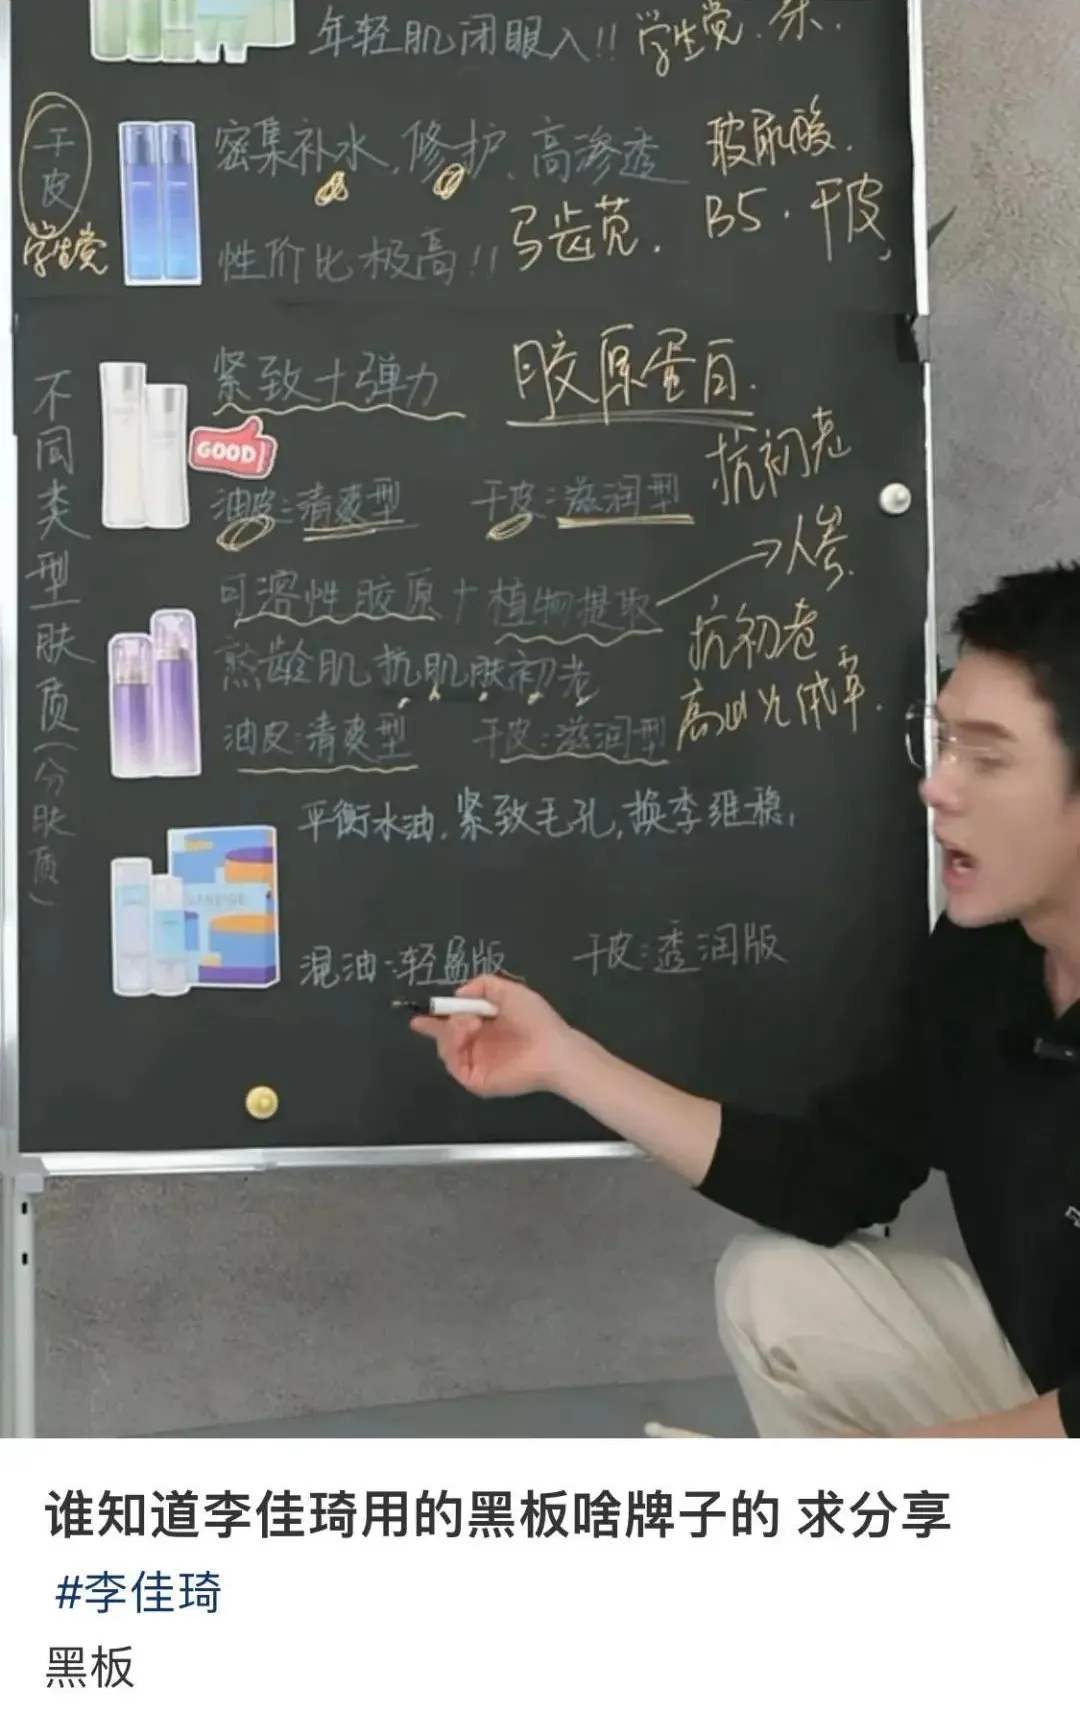 年轻肌闭眼入!! 学生党.
干皮
学生党
密集补水,修护,高渗透
玻尿酸.
性价比极高!!
马齿苋.
B5.干皮,
不同类型肤质(分肤质)
紧致+弹力
胶原蛋白.
GOOD
抗初老
油皮:清爽型 干皮:滋润型
可溶性胶原+植物提取
→人参.
熟龄肌抗肌肤初老
抗初老
油皮:清爽型 干皮:滋润型
高山火绒草.
平衡水油,紧致毛孔,换季维稳,
LANEIGE
混油:轻盈版 干皮:透润版
谁知道李佳琦用的黑板啥牌子的 求分享
#李佳琦
黑板